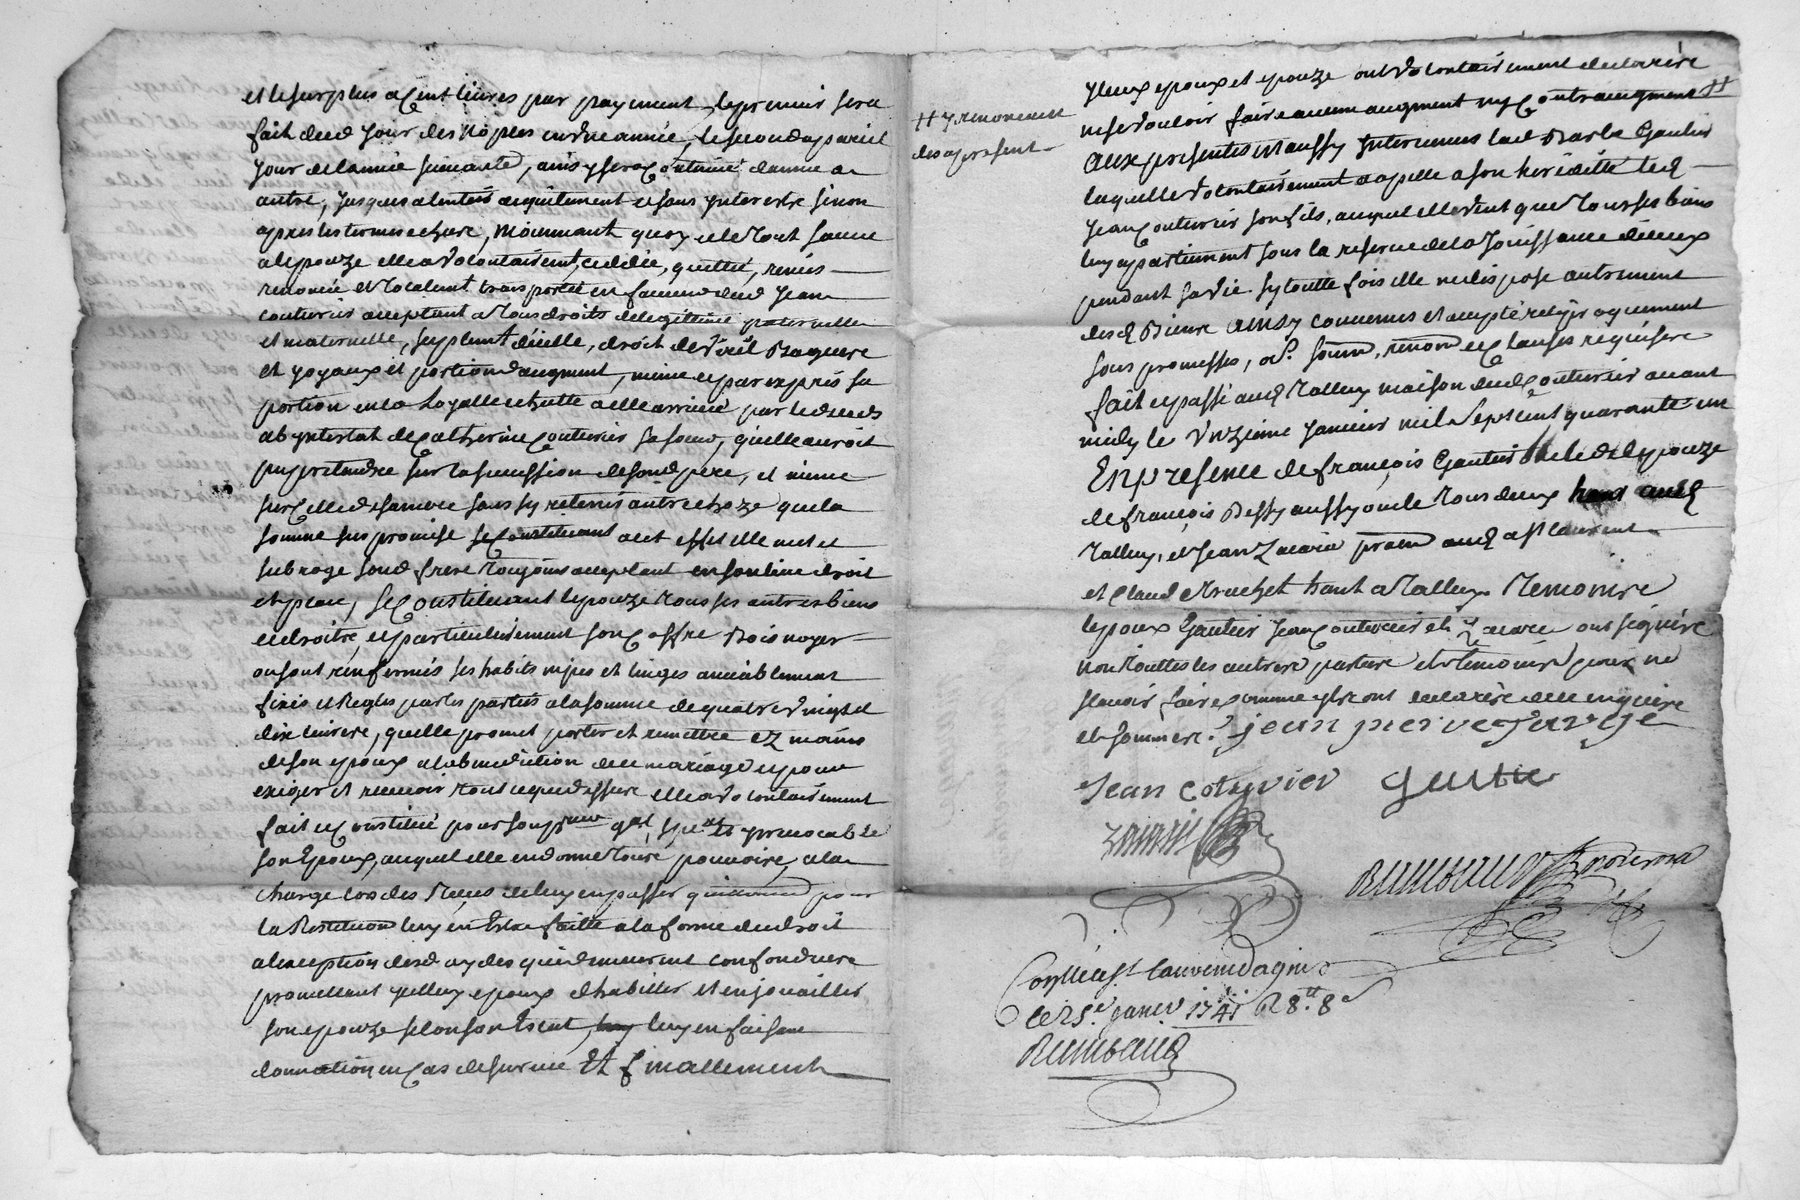 et le surplus a cent livres par payement, le premier sera
fait dud jour des nopces en une année, le second a pareil
jour de lannée suivante, ainsy sera continué dannée a
autre, jusques a lentier aquitement et sans ynterestz sinon
apres les termes echeus, moyennant quoy et le tout sauue
a lepouze elle a volontairemt, ceddé, quitté, remis
renoncé et totalemt transporté en faueur dud Jean
couturier acceptant a tous droits de legitime paternelle
et maternelle, supplemt dicelle, droit de
et joyaux et portion daugment, meme et par exprés sa
portion en la hoyrie echutte a elle arriuée par le deces
ab yntestat de Catherine Couturier sa soeur, quelle auroit
pu pretendre sur la succession de sond pere, et meme
sur celle de sa mere sans sy retenir autre choze que la
somme sus promise se constituant a cet effet elle met et
subroge sond frere toujours acceptant en son lieu droit
et place, se constituant lepouze tous ses autres biens
et droits, et particulierement son coffre bois noyer
ou sont renfermés ses habits nipes et linges amiablement
fixés et reglés par les parties a la somme de quatre vingt et
dix liures, quelle promet porter et remettre ez mains
de son epoux a la benediction de ce mariage et pour
exiger et receuoir tout ce que dessus elle a volontairement
fait et constitué pour son procureur gnal, speal et yrreuocable
son Epoux, auquel elle en donne tout pouuoir, a la
charge lors des receus de luy en passer quittance pour
la Restitution luy en Estre faitte a la forme du droit
a lexception desd que demeureront confondus
promettant led epoux dhabiller et enjoualler
son epouze selon son Estat, luy en faisant
donnation en cas de suruie Et finallement
+/+ y renoncent
des apresent
yceux epoux et epouze ont volontairement declaré
ne se vouloir faire aucun augment ny contraugment +/+
aux presentes et aussy Interuenue lad Gautier
laquelle volontairement a apellé a son heredité led
Jean Couturier son fils, auquel elle veut que tous ses biens
luy apartiennent sous la reserue de la jouissance diceux
pendant sa vie sy toutte fois elle ne dispose autrement
desd Biens ainsy conuenus et accepté reciproquement
sous promesses, ob. soum, renon et clauses requises
fait et passé aud Talluy maison dud couturier auant
midy le vnzieme janvier mil sept cent quarante un
En presence de françois Gautier oncle de lepouze
de françois aussy oncle tous deux aud
Talluy, et Jean Zacarie praen aud st laurent
et Claud hant a Talluy Temoins
lepoux Gautier Jean couturier et Zacarie ont signé
non touttes les autres parties et temoins pour ne
scauoir faire comme ils ont declaré de ce enquis
et sommés. jean pierre
Jean coturier Gautie
Zacarie
Rimbaud
Conllé a st laurent dagni
ce 25e janer 1741 R 8tt 8s
Rimbaud